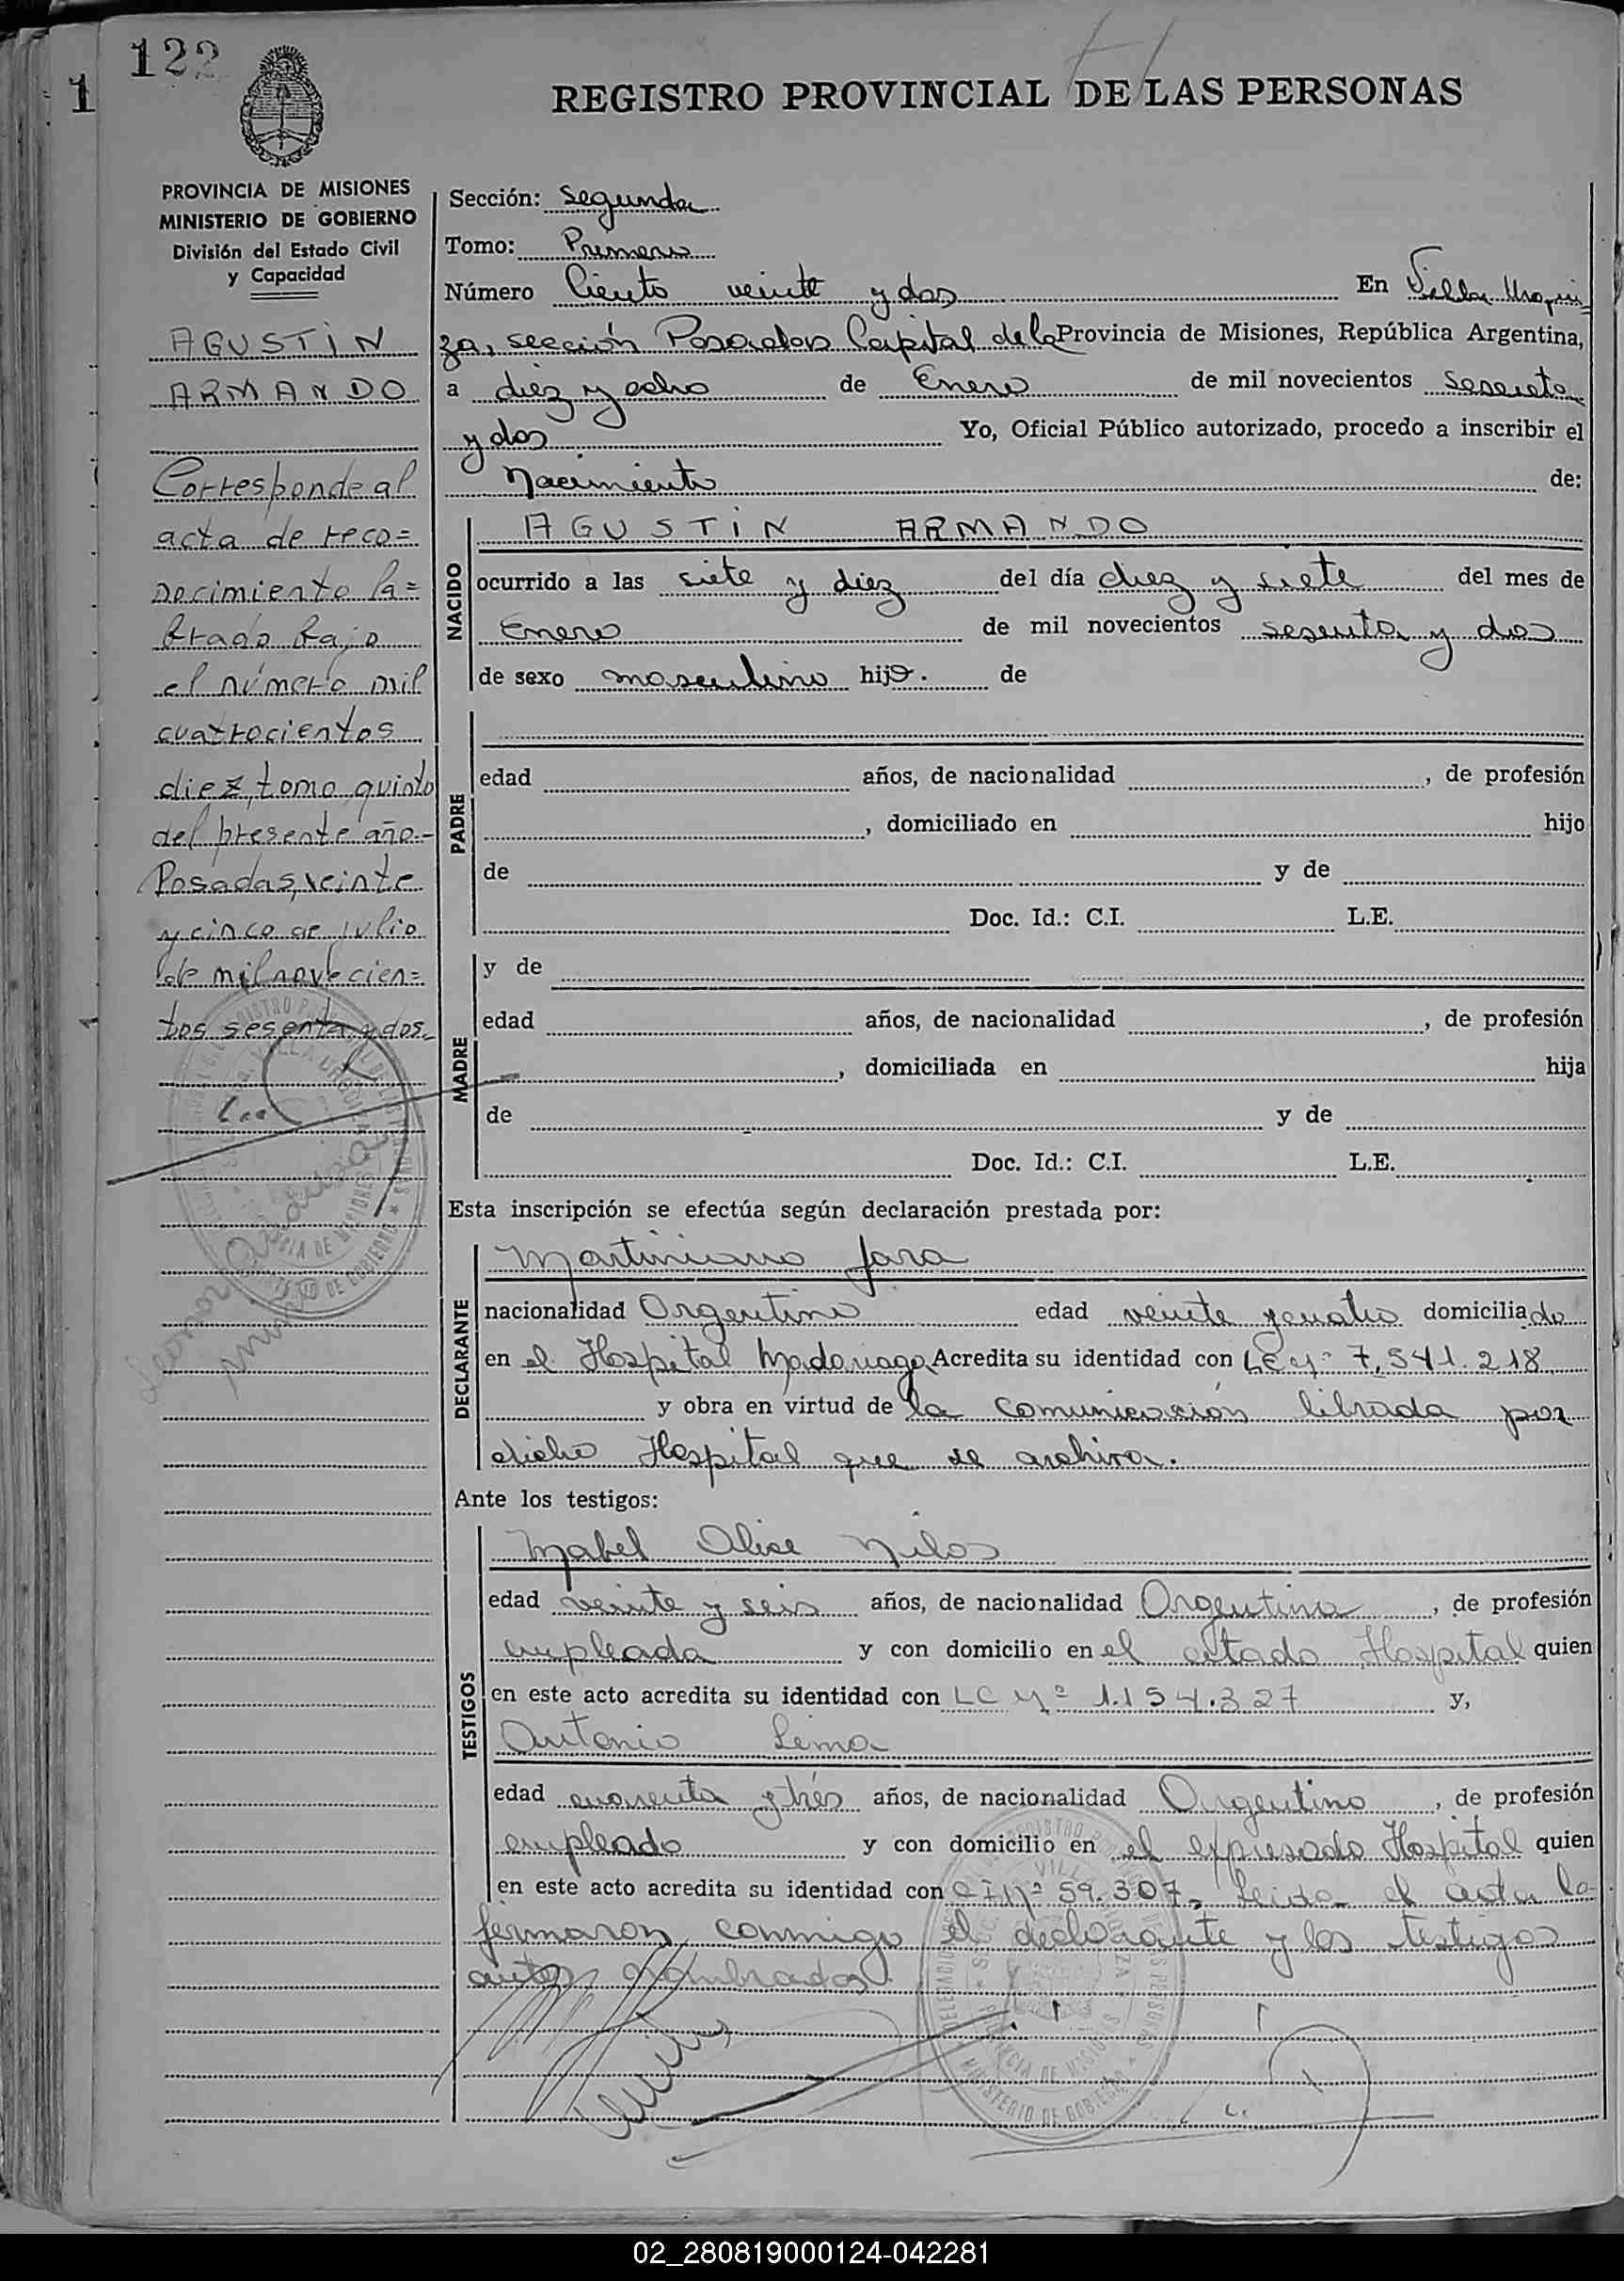 122
1
REGISTRO PROVINCIAL DE LAS PERSONAS
PROVINCIA DE MISIONES
MINISTERIO DE GOBIERNO
División del Estado Civil
y Capacidad
AGUSTIN
ARMANDO
Corresponde al
acta de reco=
nocimiento la=
brado bajo
el número mil
cuatrocientos
diez, tomo quinto
del presente año.-
Posadas, veinte
y cinco de julio
de mil novecien=
tos sesenta y dos.
Sección: Segunda
Tomo: Primero
Número Ciento veinte y dos En Villa Urqui=
za, sección Posadas Capital de la Provincia de Misiones, República Argentina,
a diez y ocho de Enero de mil novecientos sesenta
y dos Yo, Oficial Público autorizado, procedo a inscribir el
Nacimiento de:
NACIDO
AGUSTIN ARMANDO
ocurrido a las siete y diez del día diez y siete del mes de
Enero de mil novecientos sesenta y dos
de sexo masculino hijo. de
PADRE
edad años, de nacionalidad , de profesión
, domiciliado en hijo
de y de
Doc. Id.: C.I. L.E.
MADRE
y de
edad años, de nacionalidad , de profesión
, domiciliada en hija
de y de
Doc. Id.: C.I. L.E.
Esta inscripción se efectúa según declaración prestada por:
DECLARANTE
Martiniano Jara
nacionalidad Argentino edad veinte y cuatro domiciliado
en el Hospital Madariaga Acredita su identidad con LE Nº 7.541.218
y obra en virtud de la comunicación librada por
dicho Hospital que se archiva.
Ante los testigos:
TESTIGOS
Mabel Alice
edad veinte y seis años, de nacionalidad Argentina, de profesión
empleada y con domicilio en el citado Hospital quien
en este acto acredita su identidad con LC Nº 1.154.327 y,
Antonio Lima
edad cuarenta y tres años, de nacionalidad Argentino, de profesión
empleado y con domicilio en el expresado Hospital quien
en este acto acredita su identidad con CI Nº 59.307, Leida el acta la
firmaron conmigo el declarante y los testigos
antes nombrados.
02_280819000124-042281